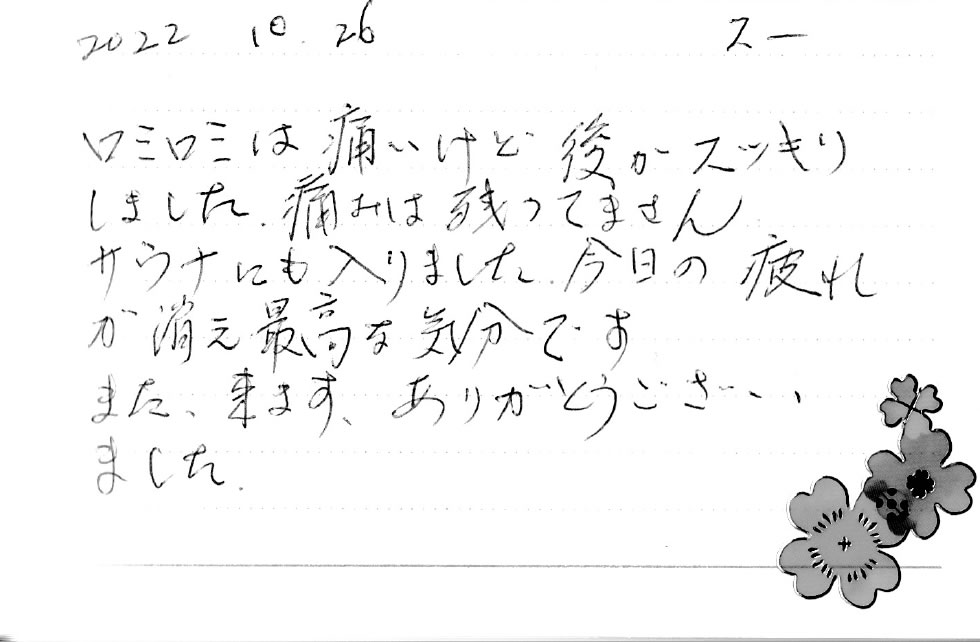 2022 10.26 スー
ロミロミは痛いけど後がスッキリ
しました。痛みは残ってません
サウナにも入りました。今日の疲れ
が消え最高な気分です
また、来ます、ありがとうござい
ました。